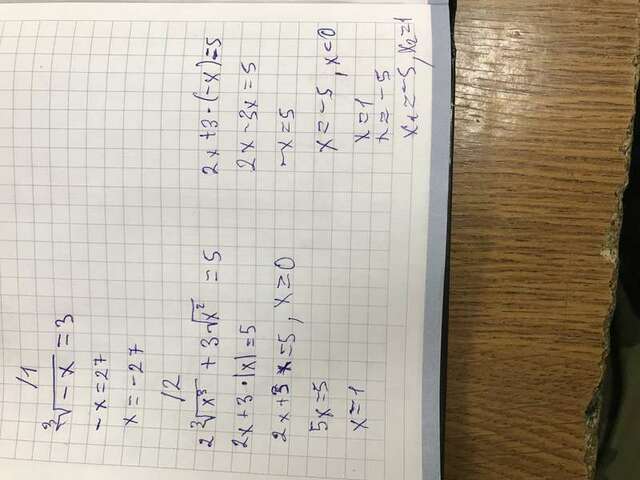 /1
∛-x = 3
-x = 27
x = -27
/2
2∛x³ + 3√x² = 5
2x + 3·|x| = 5
2x + 3x = 5, x ≥ 0
5x = 5
x = 1
2x + 3·(-x) = 5
2x - 3x = 5
-x = 5
x = -5, x < 0
x = 1
x = -5
x₁ = -5, x₂ = 1